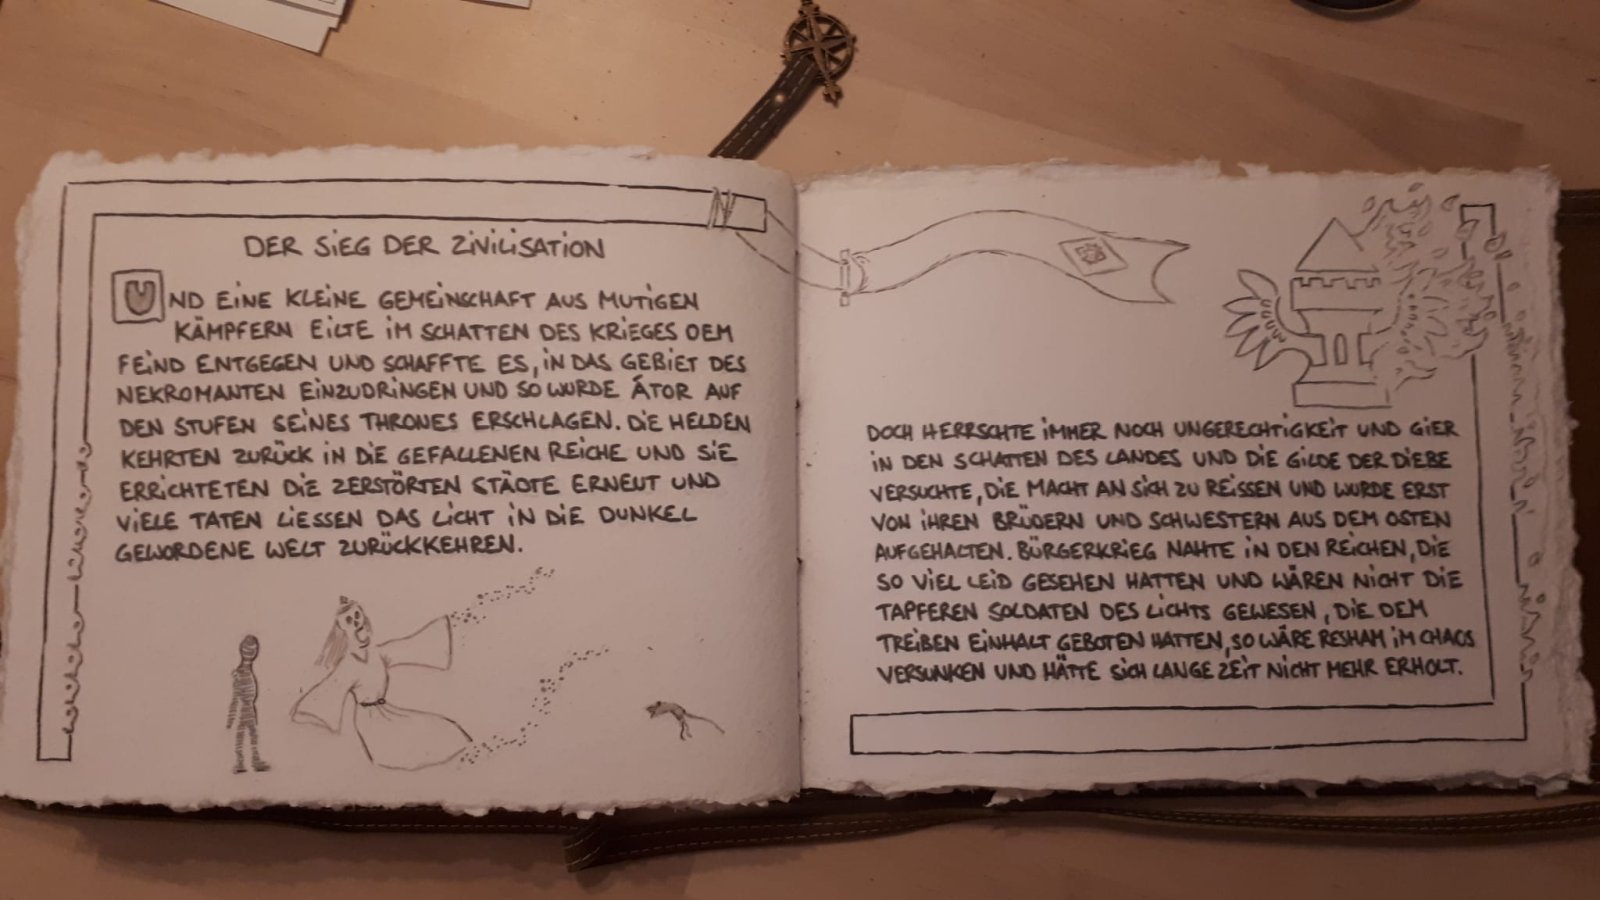 DER SIEG DER ZIVILISATION
UND EINE KLEINE GEMEINSCHAFT AUS MUTIGEN
KÄMPFERN EILTE IM SCHATTEN DES KRIEGES DEM
FEIND ENTGEGEN UND SCHAFFTE ES, IN DAS GEBIET DES
NEKROMANTEN EINZUDRINGEN UND SO WURDE ÁTOR AUF
DEN STUFEN SEINES THRONES ERSCHLAGEN. DIE HELDEN
KEHRTEN ZURÜCK IN DIE GEFALLENEN REICHE UND SIE
ERRICHTETEN DIE ZERSTÖRTEN STÄDTE ERNEUT UND
VIELE TATEN LIESSEN DAS LICHT IN DIE DUNKEL
GEWORDENE WELT ZURÜCKKEHREN.
DOCH HERRSCHTE IMMER NOCH UNGERECHTIGKEIT UND GIER
IN DEN SCHATTEN DES LANDES UND DIE GILDE DER DIEBE
VERSUCHTE, DIE MACHT AN SICH ZU REISSEN UND WURDE ERST
VON IHREN BRÜDERN UND SCHWESTERN AUS DEM OSTEN
AUFGEHALTEN. BÜRGERKRIEG NAHTE IN DEN REICHEN, DIE
SO VIEL LEID GESEHEN HATTEN UND WÄREN NICHT DIE
TAPFEREN SOLDATEN DES LICHTS GEWESEN, DIE DEM
TREIBEN EINHALT GEBOTEN HATTEN, SO WÄRE RESHAM IM CHAOS
VERSUNKEN UND HÄTTE SICH LANGE ZEIT NICHT MEHR ERHOLT.